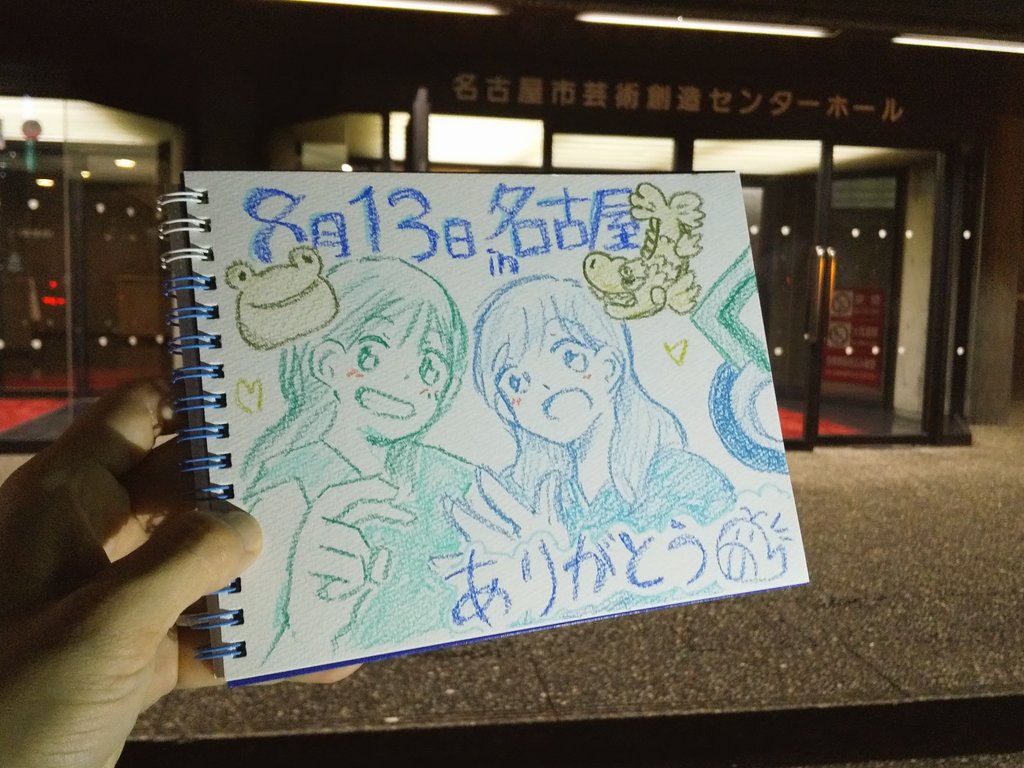 名古屋市芸術創造センターホール
8月13日 in 名古屋
ありがとう